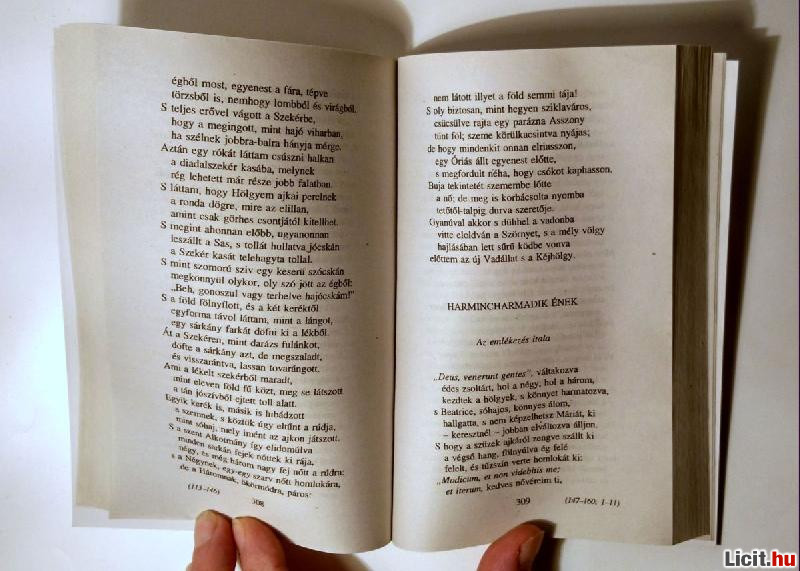 égből most, egyenest a fára, tépve
törzsből is, nemhogy lombból és virágból.
S teljes erővel vágott a Szekérbe,
hogy a megingott, mint hajó viharban,
ha szélnek jobbra-balra hányja mérge.
Aztán egy rókát láttam csúszni halkan
a diadalszekér kasába, melynek
rég lehetett már része jobb falatban.
S láttam, hogy Hölgyem ajkai perelnek
a ronda dögre, mire az elillan,
amint csak görhes csontjától kitellhet.
S megint ahonnan előbb, ugyanonnan
leszállt a Sas, s tollát hullatva jócskán
a Szekér kasát telehagyta tollal.
S mint szomorú szív egy keserű szócskán
megkönnyül olykor, oly szó jött az égből:
„Beh, gonoszul vagy terhelve hajócskám!”
S a föld fölnyílott, és a két keréktől
egyforma távol láttam, mint a lángot,
egy sárkány farkát döfni ki a lékből.
Át a Szekéren, mint darázs fulánkot,
döfte a sárkány azt, de megszaladt,
és visszarántva, lassan tovarángott.
Ami a lékelt szekérből maradt,
mint eleven föld fű közt, meg se látszott
a tán jószívből ejtett toll alatt.
Egyik kerék is, másik is lubádzott
a szennek, s köztük úgy eltűnt a rúdja,
mint sóhaj, mely imént az ajkon játszott.
S a szent Alkotmány így elidomúlva
minden sarkán fejek nőttek ki rája,
négy, és még három nagy fej nőtt a rúdra:
s a Négynek, egy-egy szarv nőtt homlokára,
de a Háromnak, ökörmódra, páros:
(113–146)
308
nem látott illyet a föld semmi tája!
S oly biztosan, mint hegyen sziklaváros,
csücsülve rajta egy parázna Asszony
tünt föl; szeme körülkacsintva nyájas;
de hogy mindenkit onnan elriasszon,
egy Óriás állt egyenest előtte,
s megfordult néha, hogy csókot kaphasson.
Buja tekintetét szemembe lőtte
a nő; de meg is korbácsolta nyomba
tetőtől-talpig durva szeretője.
Gyanúval akkor s dühhel a vadonba
vitte eloldván a Szörnyet, s a mély völgy
hajlásában lett sűrű ködbe vonva
előttem az új Vadállat s a Kéjhölgy.
HARMINCHARMADIK ÉNEK
Az emlékezés itala
„Deus, venerunt gentes”, váltakozva
édes zsoltárt, hol a négy, hol a három,
kezdtek a hölgyek, s könnyet harmatozva,
s Beatrice, sóhajos, könnyes álom,
hallgatta, s nem képzelhetsz Máriát, ki
– keresztnél – jobban elváltozva álljon.
S hogy a szüzek ajkáról zengve szállt ki
a végső hang, fölnyúlva ég felé
felelt, és tűzszín verte homlokát ki:
„Modicum, et non videbitis me;
et iterum, kedves nővéreim ti,
309
(147–160; 1–11)
Licit.hu